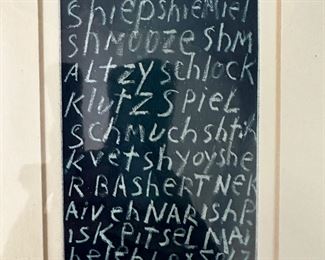 shlepshlemiel
shmoozeshm
Altzyschlock
KlutzSpiel
Schmuchshtik
kvetshyoyshe
RBAshertNek
AivehNARishP
isKPitselMAi